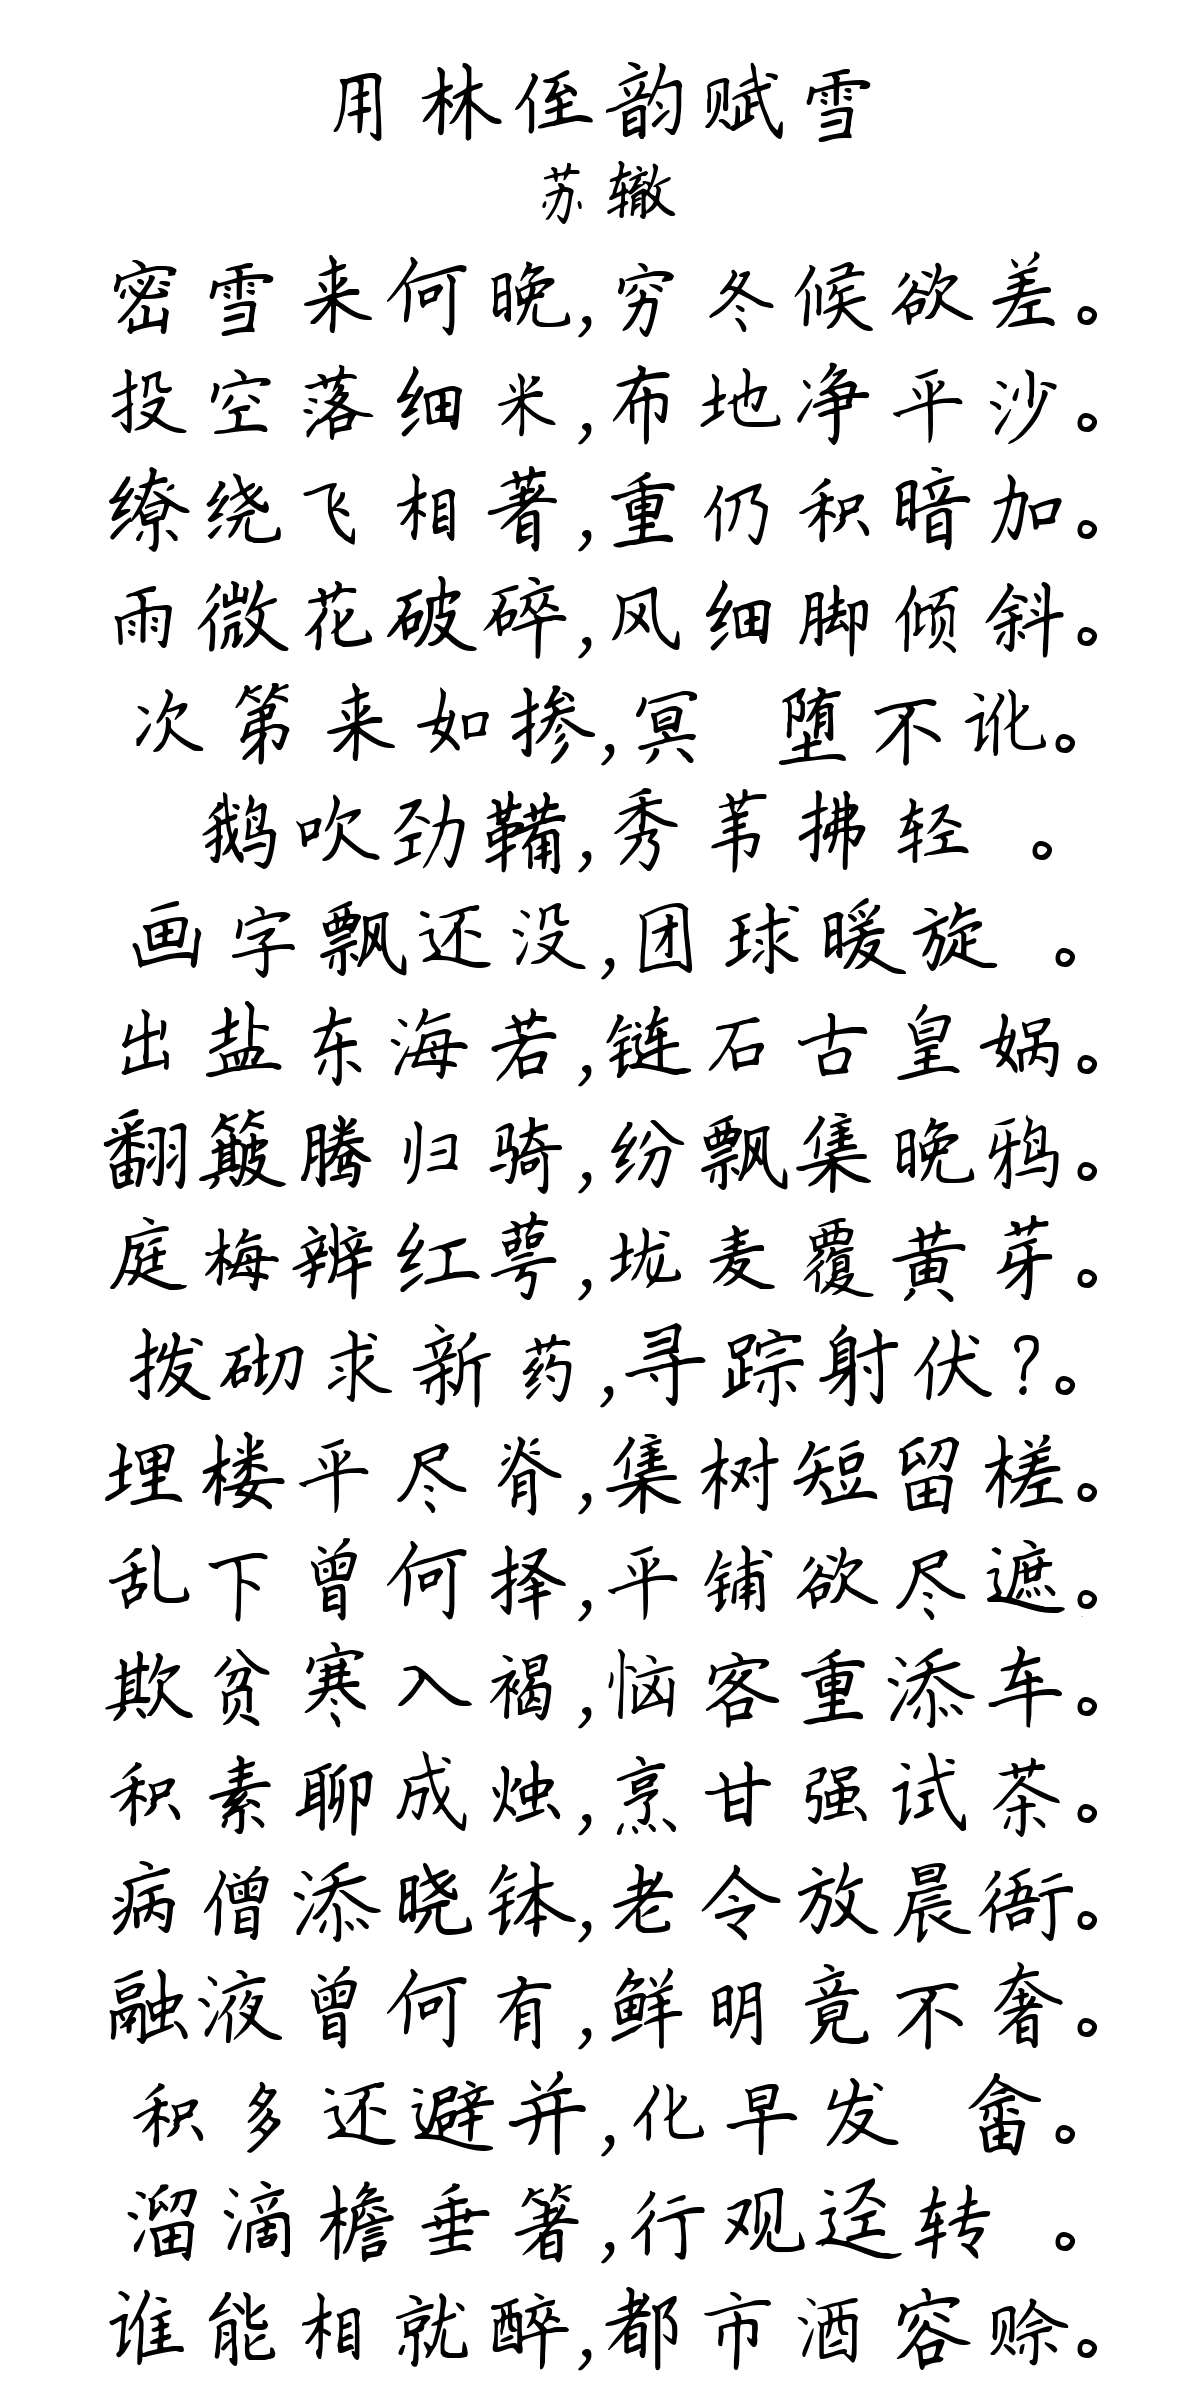 用林侄韵赋雪
苏辙
密雪来何晚,穷冬候欲差。
投空落细米,布地净平沙。
缭绕飞相著,重仍积暗加。
雨微花破碎,风细脚倾斜。
次第来如掺,冥 堕不讹。
鹅吹劲鞴,秀苇拂轻 。
画字飘还没,团球暖旋 。
出盐东海若,链石古皇娲。
翻簸腾归骑,纷飘集晚鸦。
庭梅辨红萼,垅麦覆黄芽。
拨砌求新药,寻踪射伏?。
埋楼平尽脊,集树短留槎。
乱下曾何择,平铺欲尽遮。
欺贫寒入褐,恼客重添车。
积素聊成烛,烹甘强试茶。
病僧添晓钵,老令放晨衙。
融液曾何有,鲜明竟不奢。
积多还避并,化早发 畲。
溜滴檐垂箸,行观迳转 。
谁能相就醉,都市酒容赊。